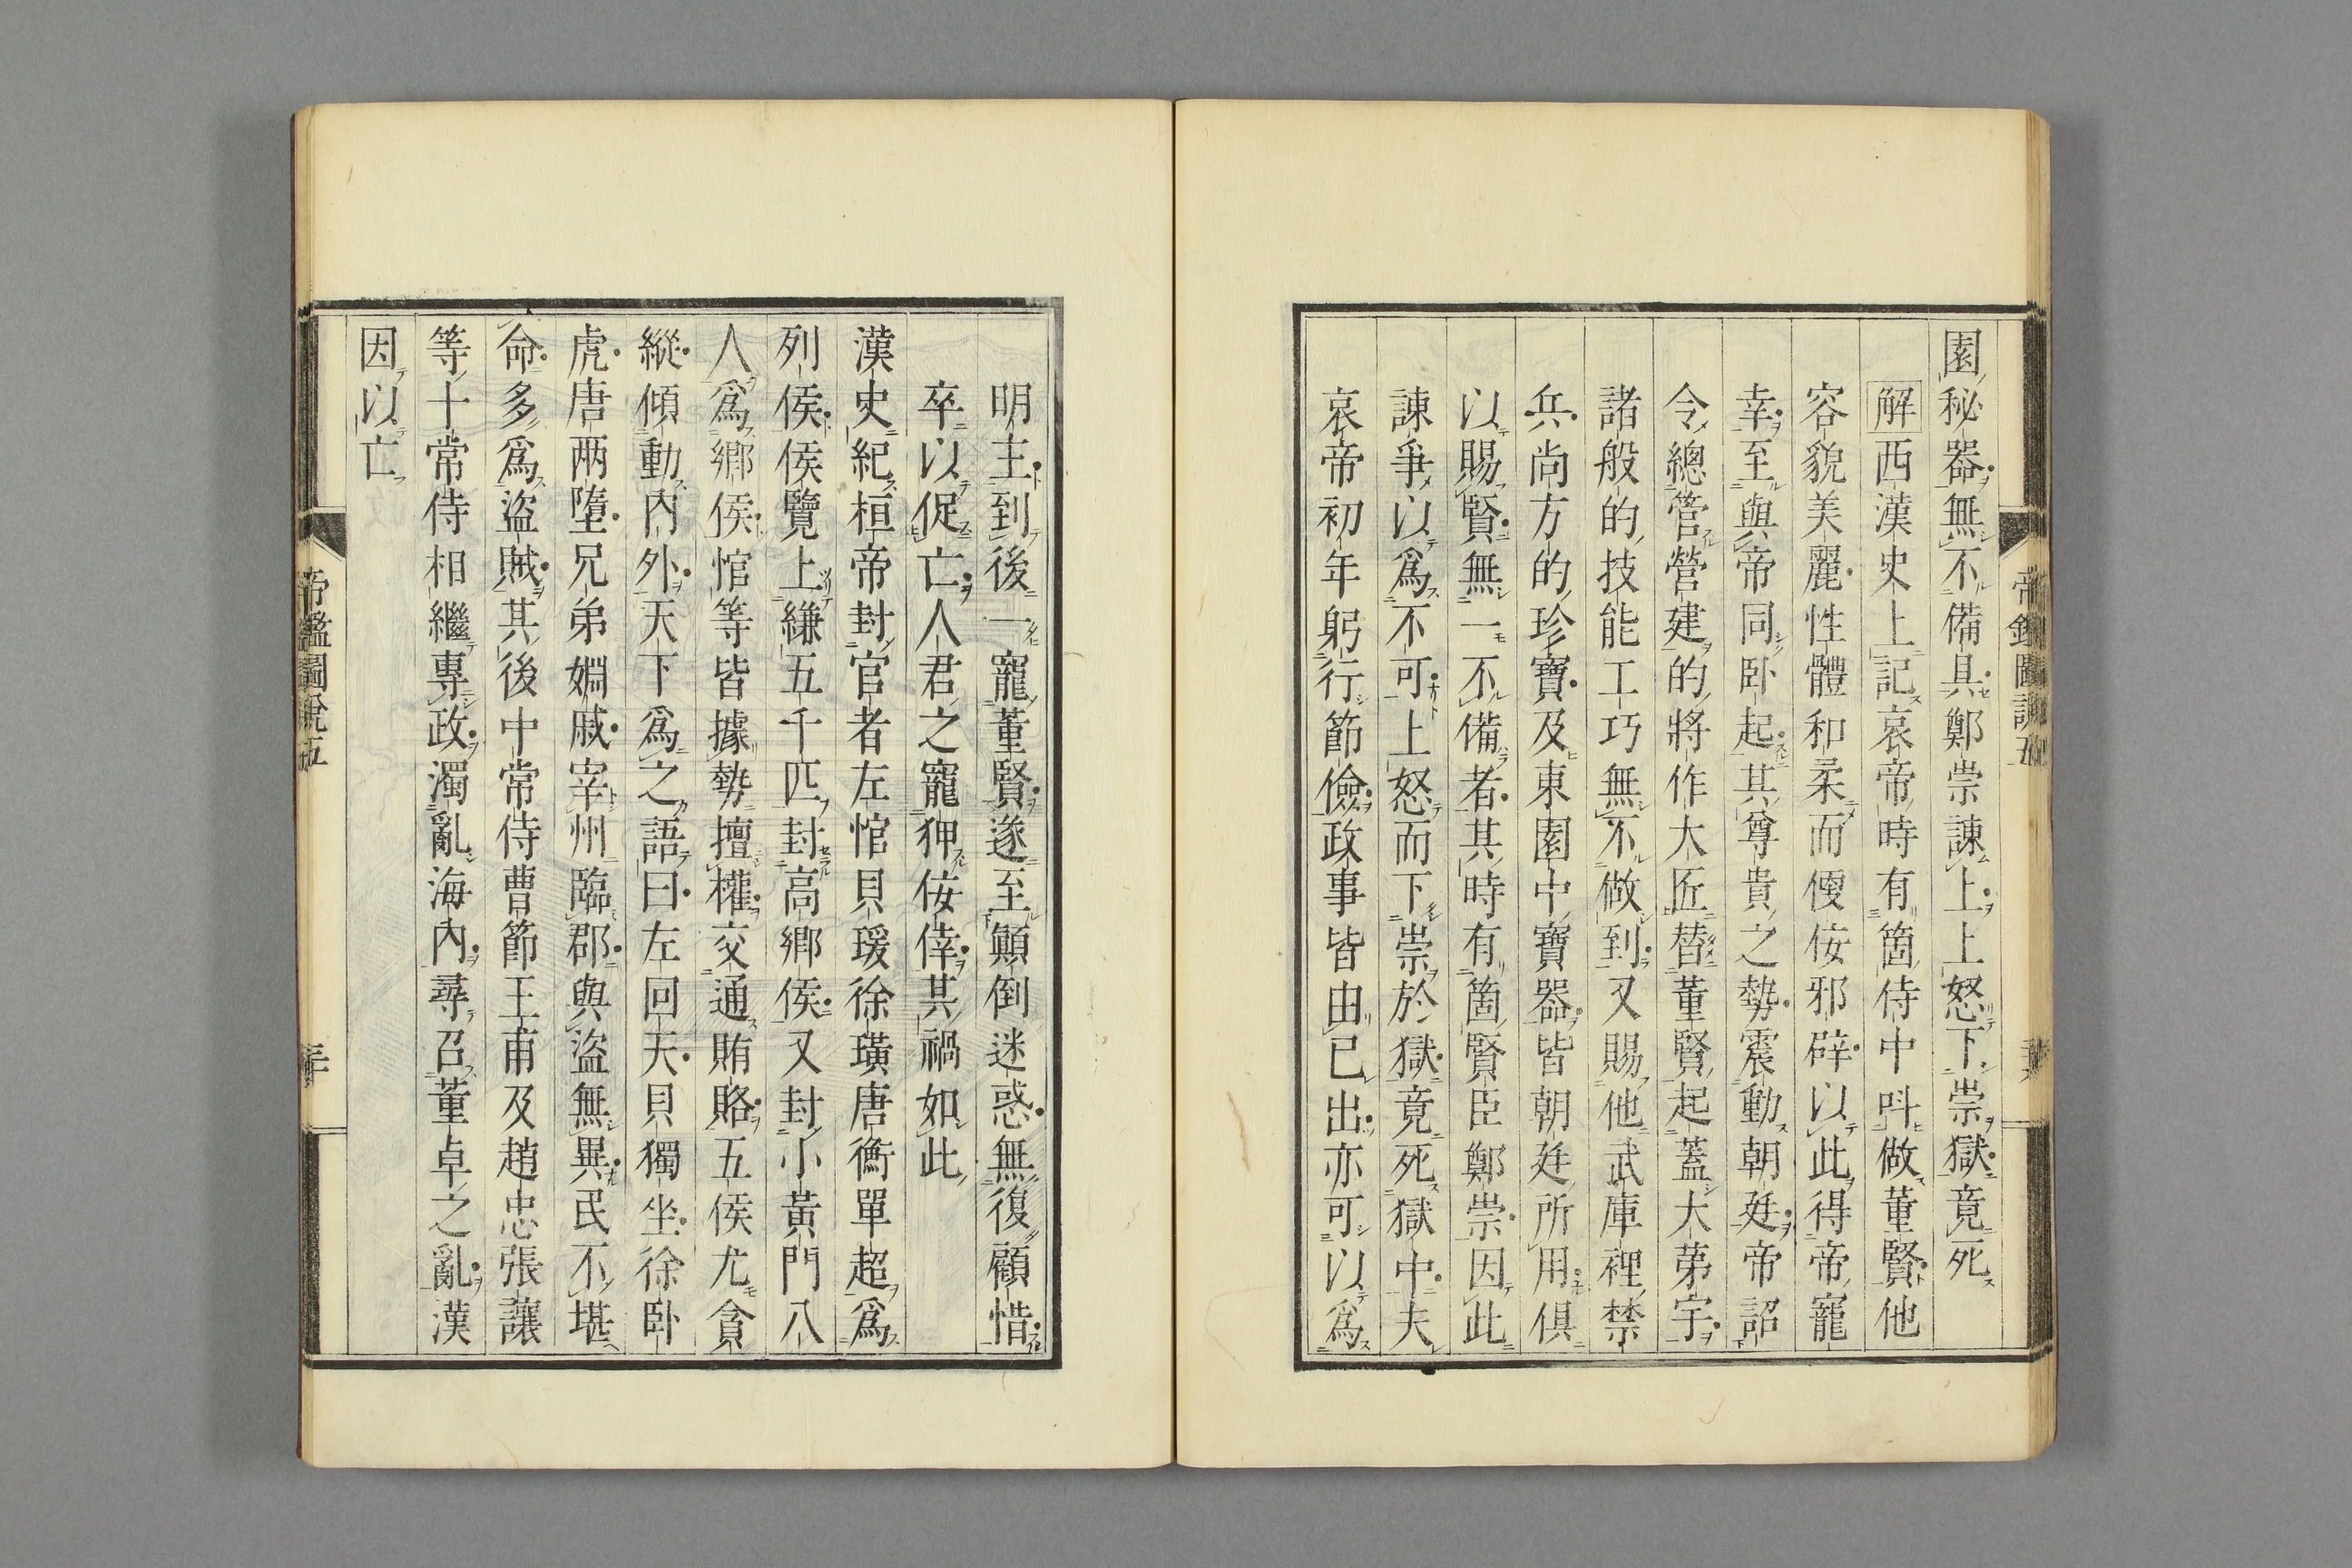 園秘器無不備具鄭崇諫上上怒下崇獄竟死
解西漢史上記哀帝時有箇侍中呌做董賢他
容貌美麗性體和柔而便佞邪辟以此得帝寵
幸至與帝同卧起其尊貴之勢震動朝廷帝詔
令總管營建的將作大匠替董賢起蓋大第宇
諸般的技能工巧無不做到又賜他武庫裡禁
兵尚方的珍寶及東園中寶器皆朝廷所用俱
以賜賢無一不備者其時有箇賢臣鄭崇因此
諫爭以爲不可上怒而下崇於獄竟死獄中夫
哀帝初年躬行節儉政事皆由已出亦可以爲
明主到後一寵董賢遂至顚倒迷惑無復顧惜
卒以促亡人君之寵狎佞倖其禍如此
漢史紀桓帝封官者左悺貝瑗徐璜唐衡單超爲
列侯侯覽上縑五千匹封高鄉侯又封小黃門八
人爲鄉侯悺等皆據勢擅權交通賄賂五侯尤貪
縱傾動內外天下爲之語曰左回天貝獨坐徐卧
虎唐兩墮兄弟婣戚宰州臨郡與盜無異民不堪
命多爲盜賊其後中常侍曹節王甫及趙忠張讓
等十常侍相繼專政濁亂海內尋召董卓之亂漢
因以亡
帝鑑圖說五